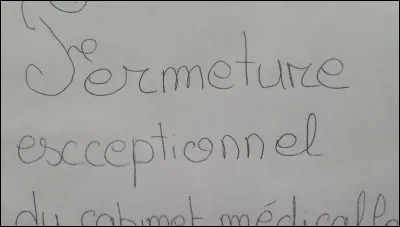 Fermeture
escceptionnel
du cabinet médicalle